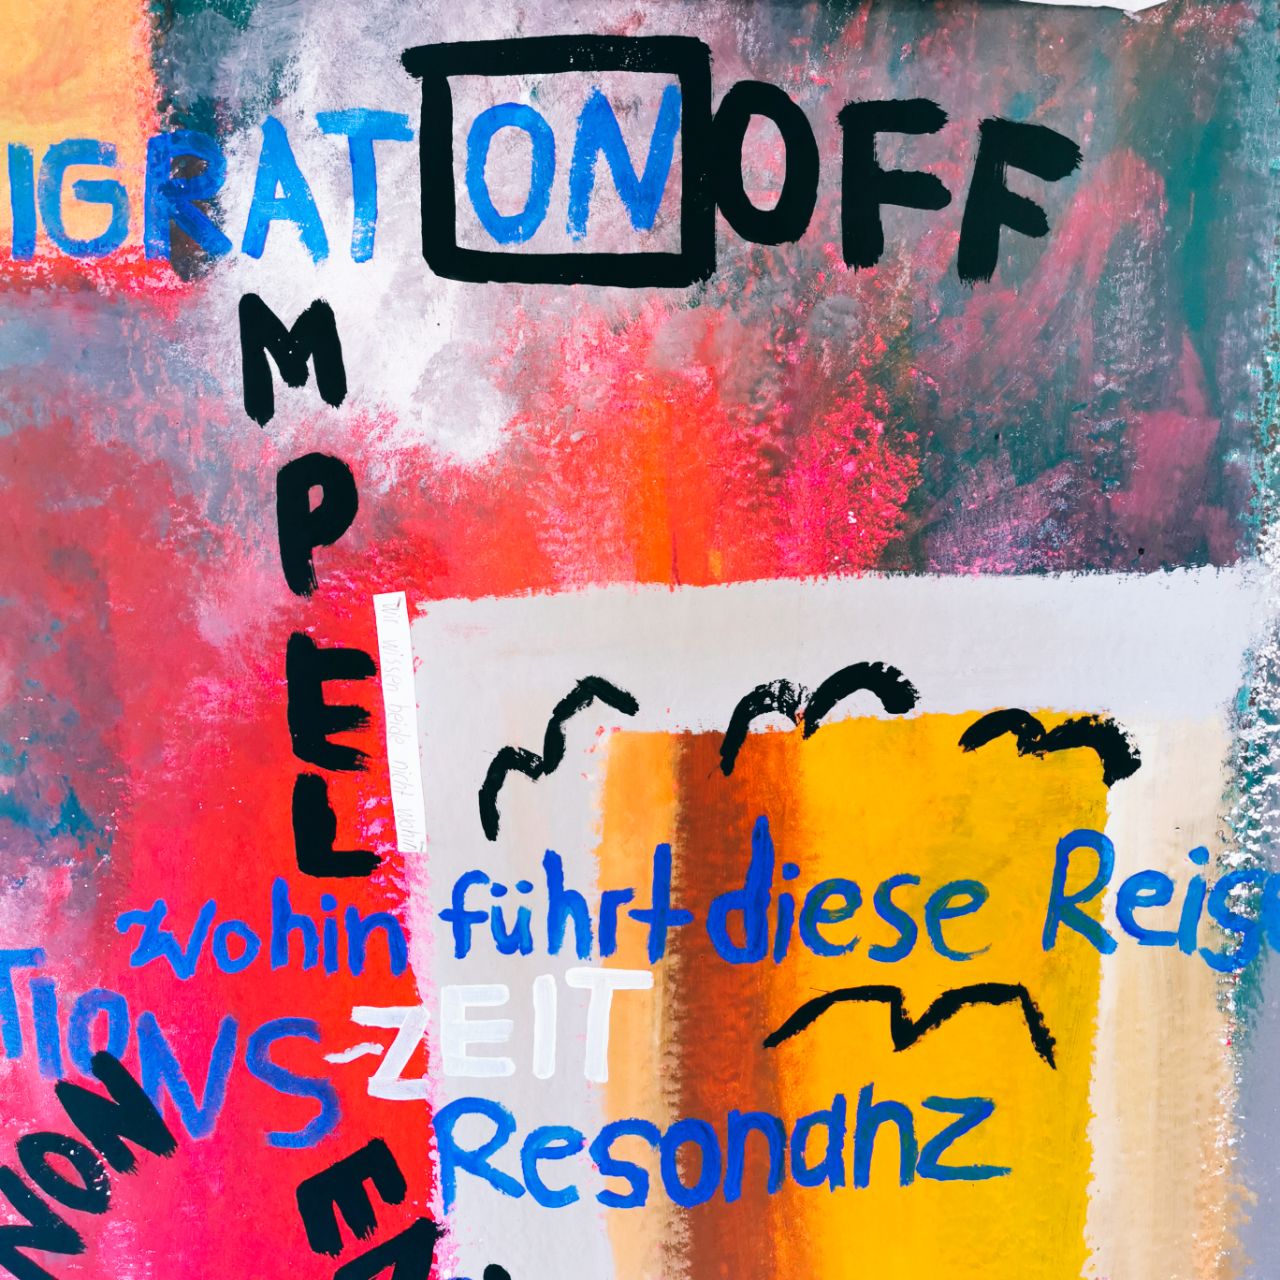 IGRAT ON OFF
AMPEL
wir wissen beide nicht wohin
wohin führt diese Reise
TIONS-ZEIT
NON
Resonanz